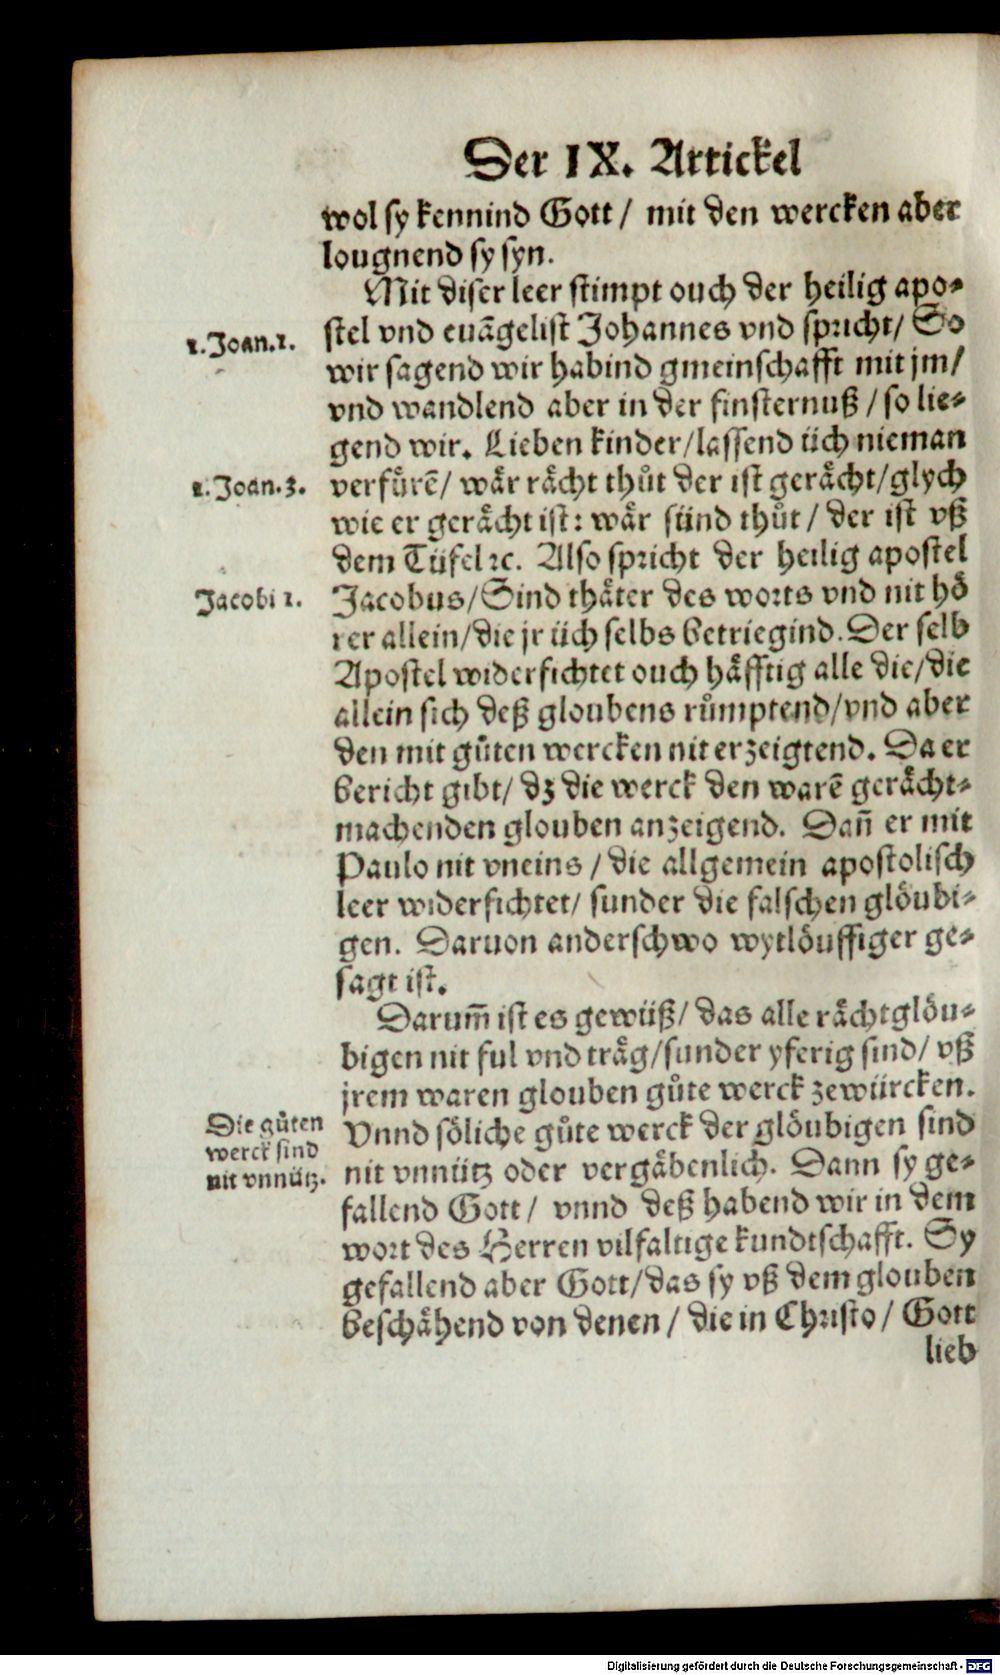 Der IX. Artickel
wol sy kennind Gott / mit den wercken aber
lougnend sy syn.
Mit diser leer stimpt ouch der heilig apo⸗
1. Joan. 1.
stel vnd euãgelist Johannes vnd spricht / So
wir sagend wir habind gmeinschafft mit jm /
vnd wandlend aber in der finsternuß / so lie⸗
gend wir. Lieben kinder / lassend üch nieman
1. Joan. 3.
verfuͤrẽ / waͤr raͤcht thuͦt der ist geraͤcht / glych
wie er geraͤcht ist: waͤr sünd thuͦt / der ist vß
dem Tüfel ꝛc. Also spricht der heilig apostel
Jacobi 1.
Jacobus / Sind thaͤter des worts vnd nit hoͤ
rer allein / die jr üch selbs betriegind. Der selb
Apostel widerfichtet ouch haͤfftig alle die / die
allein sich deß gloubens ruͦmptend / vnd aber
den mit guͦten wercken nit erzeigtend. Da er
bericht gibt / dz die werck den warẽ geraͤcht⸗
machenden glouben anzeigend. Dañ er mit
Paulo nit vneins / die allgemein apostolisch
leer widerfichtet / sunder die falschen gloͤubi⸗
gen. Daruon anderschwo wytloͤuffiger ge⸗
sagt ist.
Darum̃ ist es gewüß / das alle raͤchtgloͤu⸗
bigen nit ful vnd traͤg / sunder yferig sind / vß
jrem waren glouben guͦte werck zewürcken.
Die guͦten
werck sind
nit vnnütz.
Vnnd soͤliche guͦte werck der gloͤubigen sind
nit vnnütz oder vergaͤbenlich. Dann sy ge⸗
fallend Gott / vnnd deß habend wir in dem
wort des Herren vilfaltige kundtschafft. Sy
gefallend aber Gott / das sy vß dem glouben
beschaͤhend von denen / die in Christo / Gott
lieb
Digitalisierung gefördert durch die Deutsche Forschungsgemeinschaft - DFG